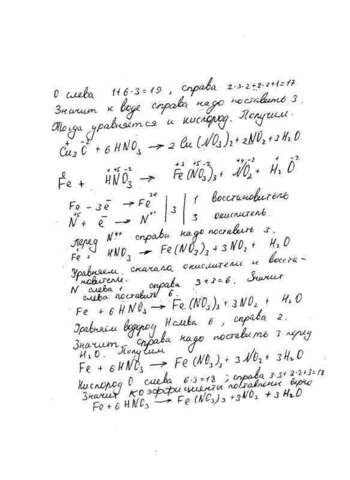 О слева 1+6·3=19, справа 2·3·2+2·2+1=17
Значит к воде справа надо поставить 3.
Тогда уравняется и кислород. Получим.
Cu₂O + 6HNO₃ → 2Cu(NO₃)₂ + 2NO₂ + 3H₂O
Fe + HNO₃ → Fe(NO₃)₃ + NO₂ + H₂O
Fe - 3e → Fe | 1 восстановитель
N + e → N | 3 | 3 окислитель.
Перед N справа поставить 3.
Fe + HNO₃ → Fe(NO₃)₃ + 3NO₂ + H₂O
Уравняем сначала окислители и восста-
новители.
N слева 1, справа 3+3=6. Значит
слева поставить 6.
Fe + 6HNO₃ → Fe(NO₃)₃ + 3NO₂ + H₂O
Уравняем водород H слева 6, справа 2.
Значит справа надо поставить 3 перед
H₂O. Получим
Fe + 6HNO₃ → Fe(NO₃)₃ + 3NO₂ + 3H₂O
Кислород О слева 6·3=18; справа 3·3+3·2+3=18
Значит коэффициенты поставлены верно
Fe + 6HNO₃ → Fe(NO₃)₃ + 3NO₂ + 3H₂O